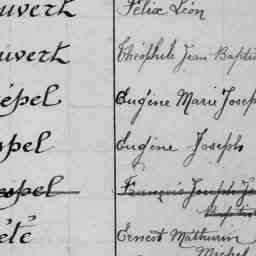 uverh Félix Léon
uverh Théophile Jean Baptis
épel Eugène Marie Joseph
spel Eugène Joseph
espel François Joseph Je
Baptis
été Ernest Mathurin
Michel